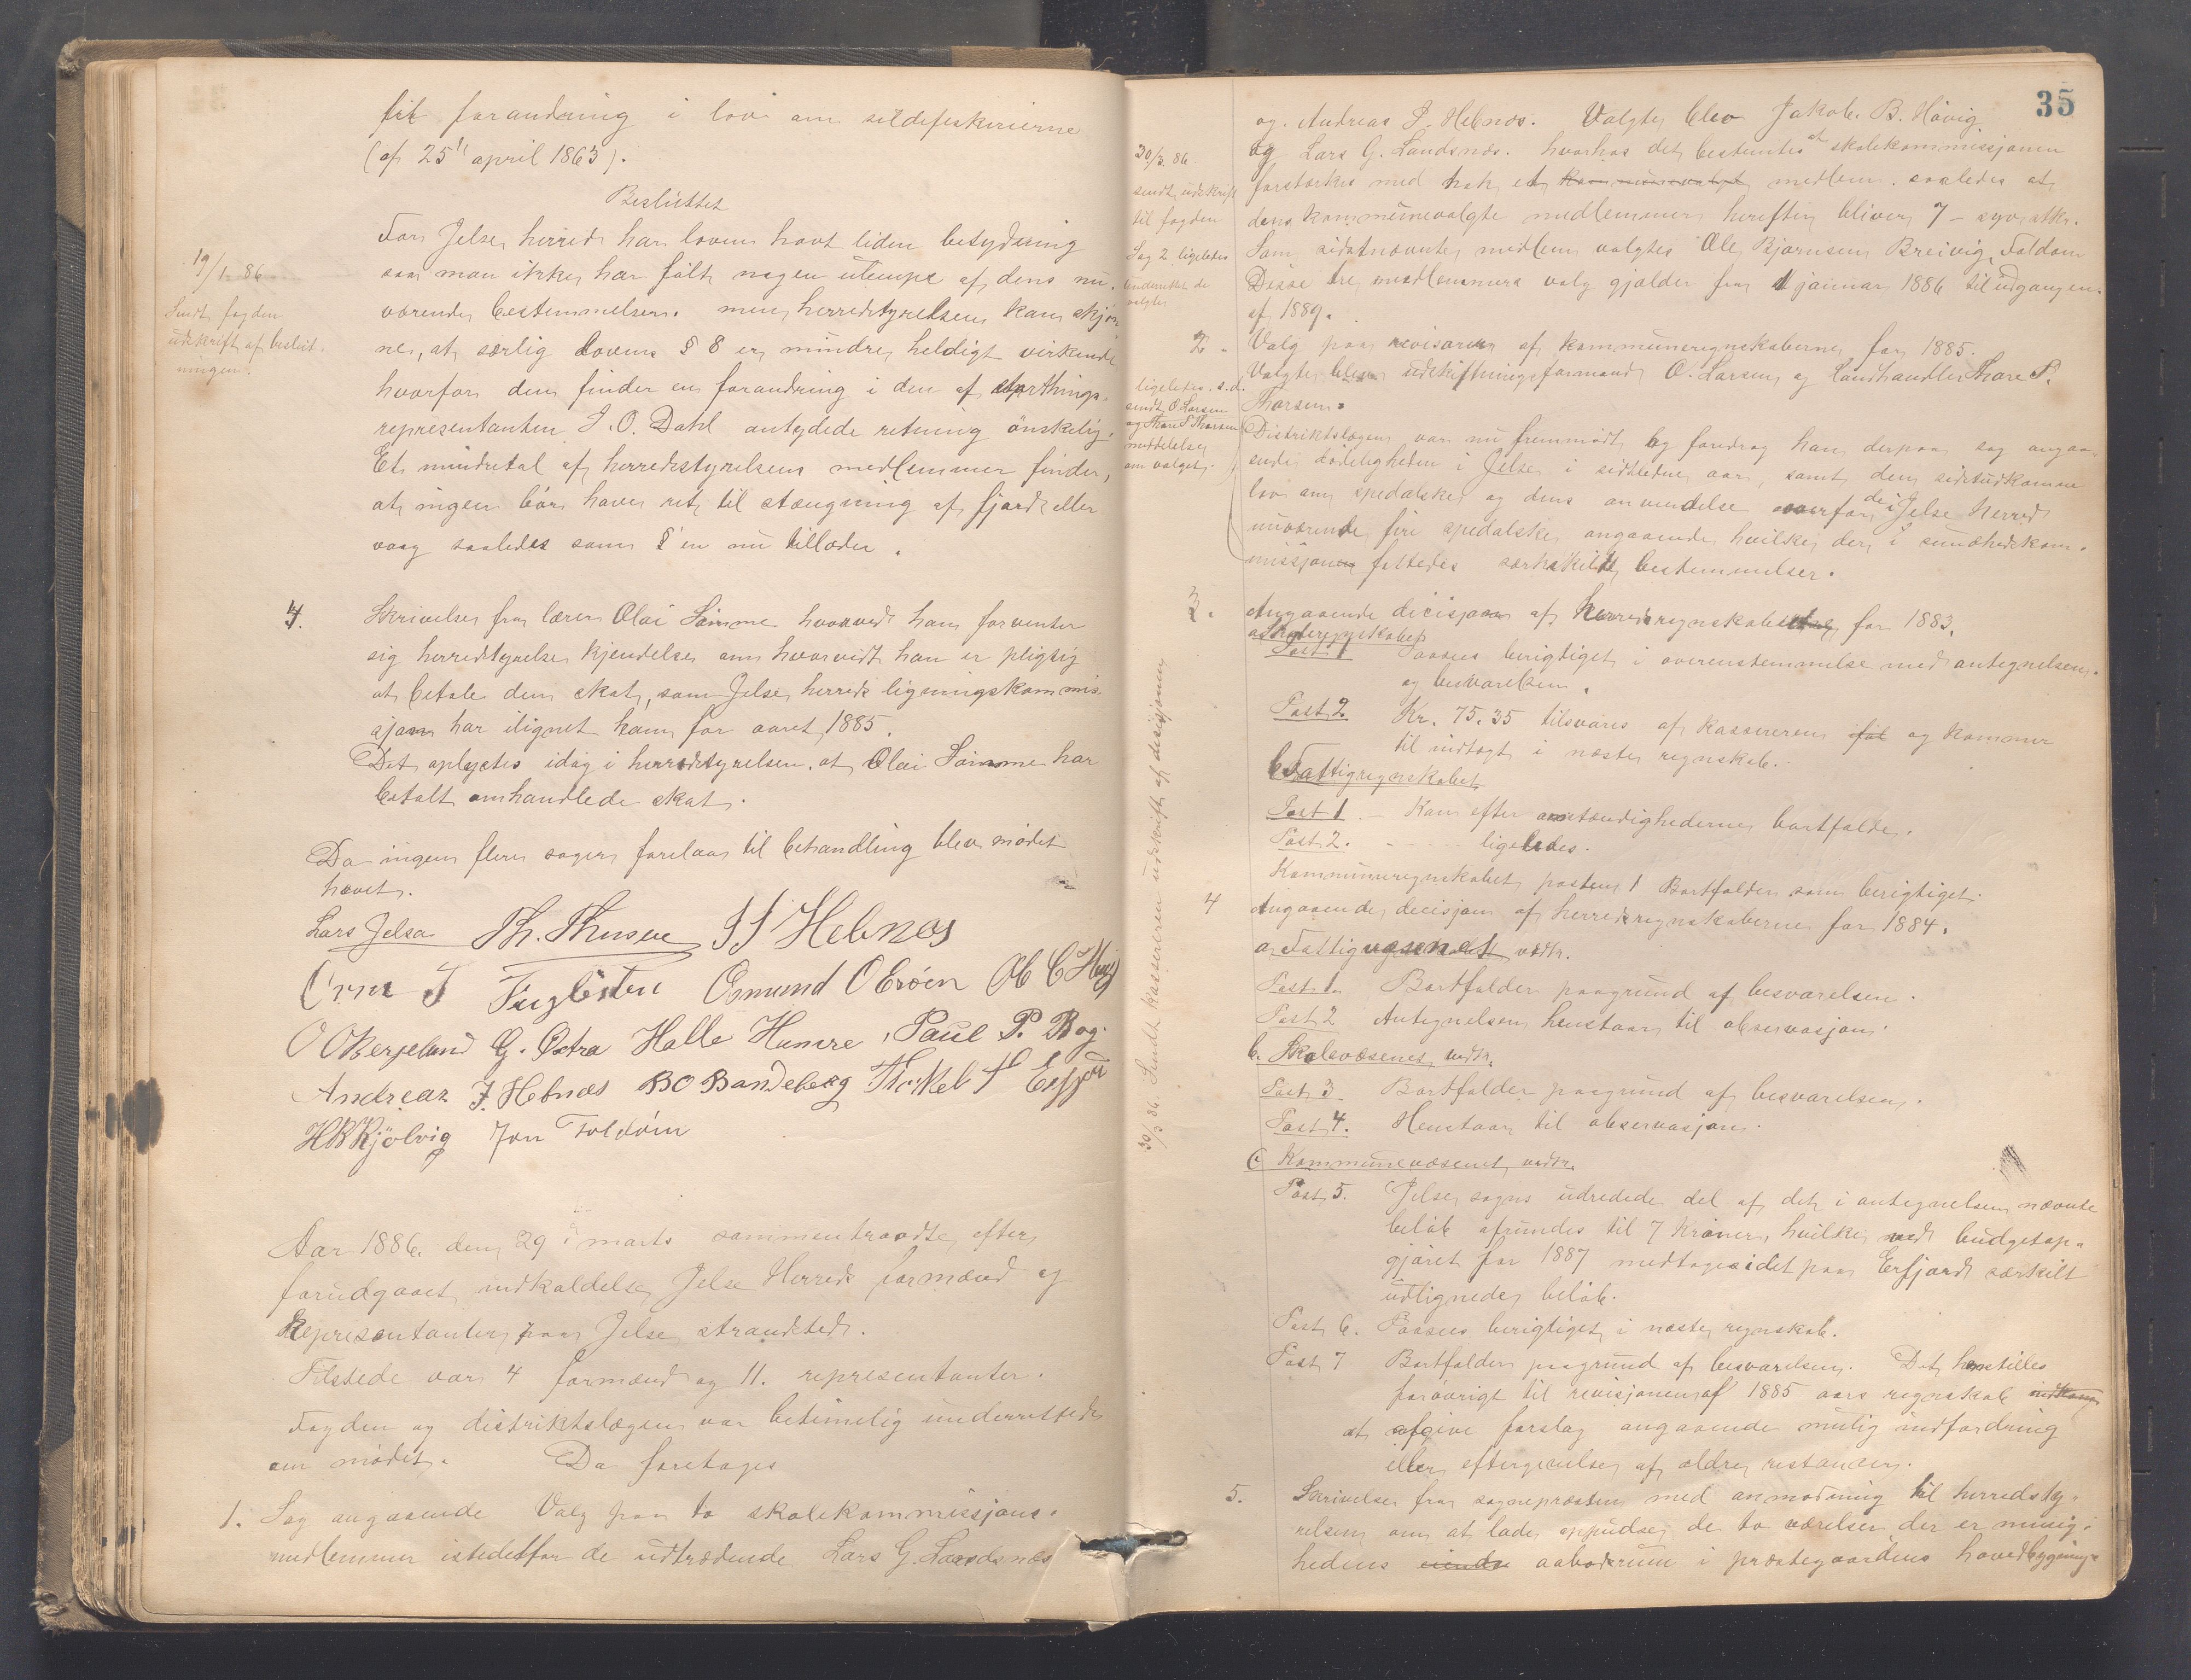 til forandring i lov om sildefiskerierne
(af 25de april 1863).
Besluttet
For Jelse herred har loven havt liden betydning
saa man ikke har følt nogen ulempe af dens nu-
værende bestemmelser. men herredstyrelsen kan skjøn-
ne, at særlig Lovens § 8 er mindre heldigt virkende
hvorfor den finder en forandring i den af storthings-
representanten J. O. Dahl antydede retning ønskelig.
Et mindretal af herredstyrelsens medlemmer finder,
at ingen bør have ret til stængning af fjord eller
vaag saaledes som §'en nu tillader.
19/1 86
Sendt fogden
udskrift af beslut-
ningen.
4. Skrivelse fra lærer Olai Sømme hvorved han forventer
sig herredstyrelse kjendelse om hvorvidt han er pligtig
at betale den skat, som Jelse herreds ligningskommis-
sjon har ilignet ham for aaret 1885.
Det oplystes idag i herredstyrelsen, at Olai Sømme har
betalt omhandlede skat.
Da ingen flere sager forelaa til behandling blev mødet
hævet.
Lars Jelsa Th. Thusen Hebnes
Orm J Fuglesten Osmund O Erøen
O O Bergeland G. Østra Halle Humre, Paul P. Bog.
Andreas J. Hebnes BO Bandeberg Torkel T Erfjor
HB Kjølvig Jon Foldøin
Aar 1886. den 29 marts sammentraadte efter
forudgaaet indkaldelse Jelse Herreds formænd og
Representanter paa Jelse strandsted.
Tilstede var 4 formænd og 11. representanter.
Fogden og distriktslægen var betimelig underrettede
om mødet. Da foretoges
1. Sag angaaende Valg paa to skolekommissjons-
medlemmer istedetfor de udtrædende Lars G. Landsnæs
35
og Andreas J. Hebnæs. Valgte blev Jakob. B. Høvig
og Lars G. Landsnæs. hvorhos det bestemtes at skolekommissjonen
forstærkes med nok et kommunevalgt medlem. saaledes at
dens kommunevalgte medlemmer herefter bliver 7 - syv stkr.
Som sidstnævnte medlem valgtes Ole Bjørnsen Breivig, Foldøen
Disse tre medlemmers valg gjælder fra 1 januar 1886 til udgangen
af 1889.
30/3. 86.
sendt udskrift
til fogden
Sag 2 ligeledes
underrettet de
valgte
2. Valg paa revisorer af kommuneregnskaberne for 1885.
Valgte blev udskiftningsformand O. Larsen og Landhandler Thore S.
Thorsen.
ligeledes s.d.
sendt O Larsen
og Thore S Thorsen
meddelelse
om valget.
Distriktslægen var nu fremmødt og foredrog han derpaa sag angaa-
ende dødeligheden i Jelse i sidstledne aar, samt den sidstudkomne
lov om spedalske og dens anvendelse overfor de i Jelse Herred
nuværende fire spedalske angaaende hvilke der i sundhedskom-
missjonen fattedes særskildt bestemmelser.
3. Angaaende dicisjon af herredsregnskaberne for 1883.
a Skoleregnskabet
Post 1 Paasees berigtiget i overenstemmelse med antegnelsen
og besvarelsen.
Post 2. Kr. 75.35 tilsvares af kassereren for og kommer
til indtægt i næste regnskab.
b Fattigregnskabet
Post 1 - Kan efter omstændighederne bortfalde.
Post 2. - - - ligeledes.
Kommuneregnskabet posten 1 Bortfalder som berigtiget.
4 Angaaende decisjon af herredsregnskaberne for 1884.
a Fattigvæsenet vedk.
Post 1. Bortfalder paagrund af besvarelsen.
Post 2 Antegnelsen henstaar til observasjon.
b. Skolevæsenet vedk.
Post 3 Bortfalder paagrund af besvarelsen.
Post 4. Henstaar til observasjon.
c Kommunevæsenet vedk.
Post 5. Jelse sogns udredede del af det i antegnelsen nævnte
beløb afrundes til 7 Kroner, hvilke ved budgetop-
gjøret for 1887 medtages i det paa Erfjord særskilt
udlignede beløb.
Post 6. Paasees berigtiget i næste regnskab.
Post 7 Bortfalder paagrund af besvarelsen. Det henstilles
forøvrigt til revisjonen af 1885 aars regnskab
at afgive forslag angaaende mulig indfordring
eller eftergivelse af ældre restancer.
30/3 86. Sendt kassereren udskrift af decisjonen
5. Skrivelse fra sognepræsten med anmodning til herredsty-
relsen om at lade oppudse de to værelser der er menig-
hedens eiendo aabodsrum i præstegaardens hovedbygning